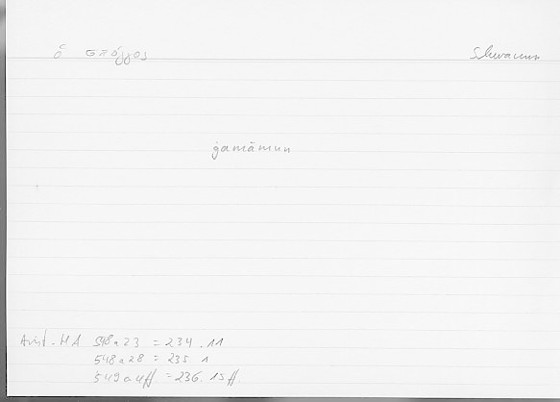 ὁ σπόγγος Schwamm
ġamāmun
Arist. HA 548a23 = 234.11
548a28 = 235.1
549a4ff. = 236.15ff.